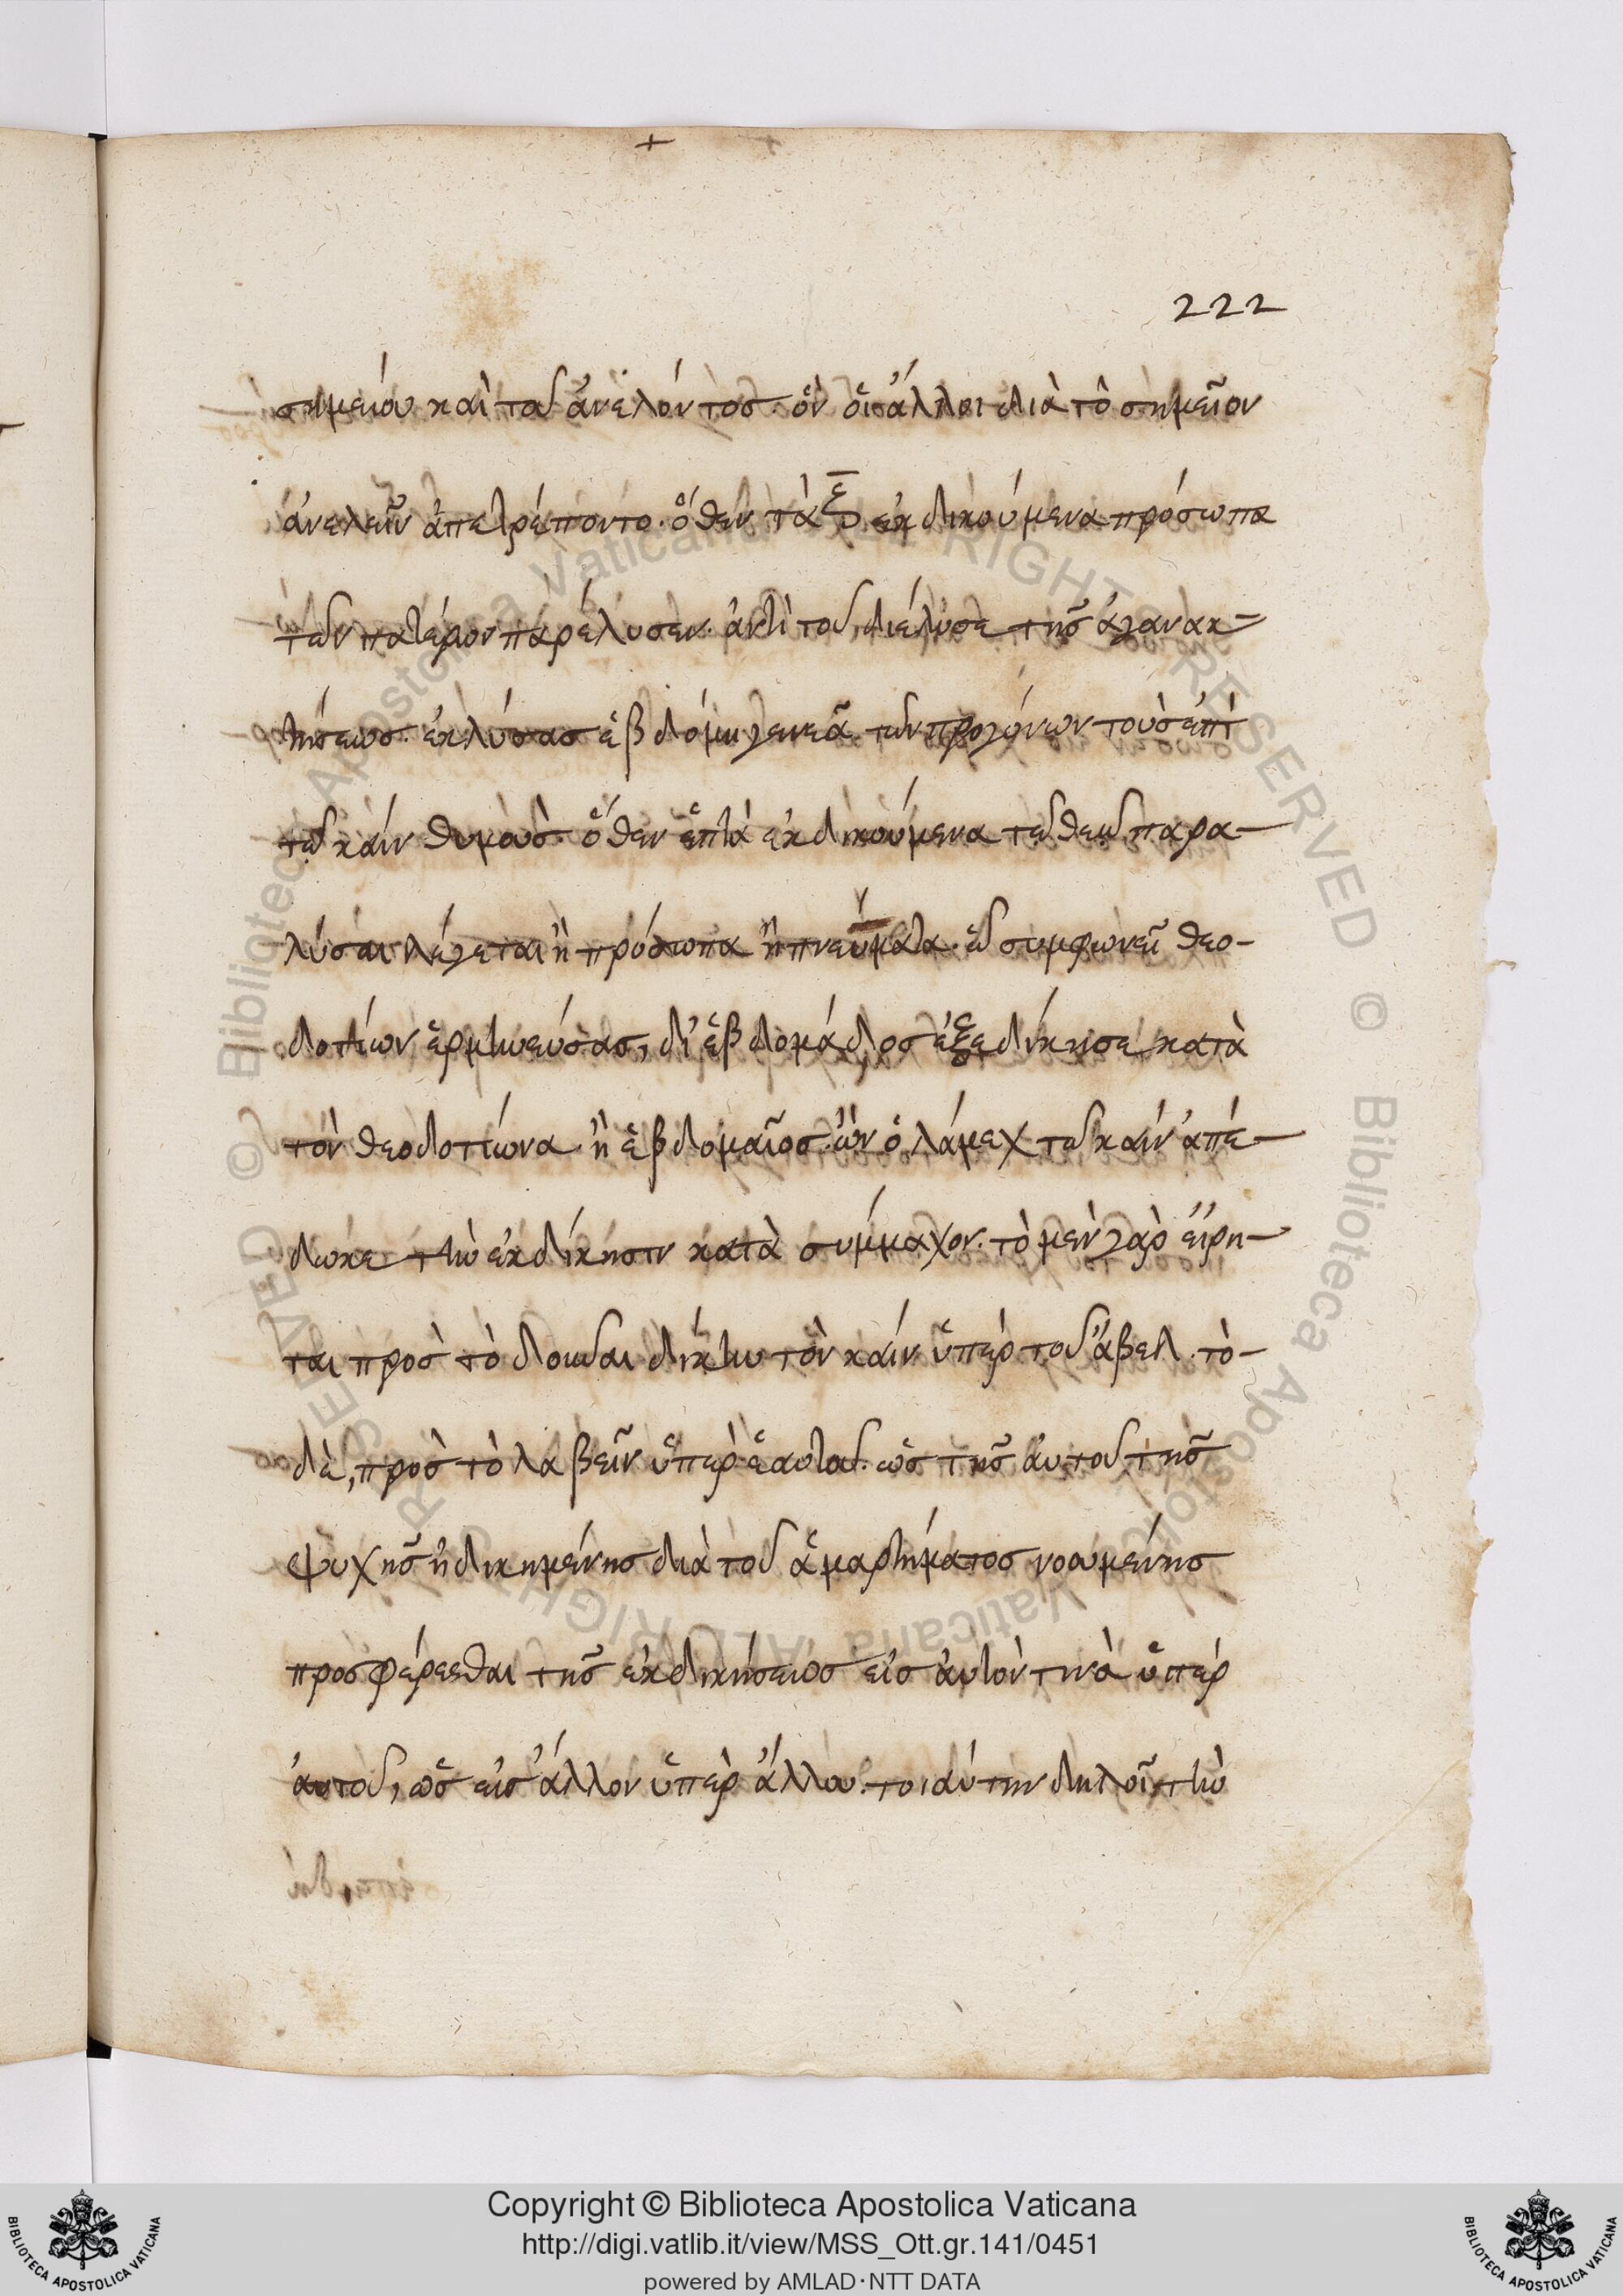 222
σημείου καὶ τοῦ ἀνελόντος. ὃν οἱ ἄλλοι διὰ τὸ σημεῖον
ἀνελεῖν ἀπετρέποντο. ὅθεν τὰ ξ ἐκδικούμενα πρόσωπα
τῶν πατέρων παρέλυσεν. ἀντὶ τοῦ, διέλυσε τῆς ἀγανακ-
τήσεως. ἐκλύσας ἑβδόμη γενεᾶ τῶν προγόνων τοὺς ἐπὶ
τῶ κάϊν θυμοὺς. ὅθεν ἑπτὰ ἐκδικούμενα τῶ θεῶ παρα-
λύσαι λέγεται ἢ πρόσωπα ἢ πνεύματα. ὧ συμφωνεῖ θεο-
δοτίων ἑρμηνεύσας, δι' ἑβδομάδος ἐξεδίκησε κατὰ
τὸν θεοδοτίωνα. ἢ ἑβδομαῖος ὢν ὁ λάμεχ τῶ κάϊν ἀπέ-
δωκε τὴν ἐκδίκησιν κατὰ σύμμαχον. τὸ μὲν γὰρ εἴρη-
ται πρὸς τὸ δοῦναι δίκην τὸν κάϊν ὑπὲρ τοῦ ἄβελ. τὸ-
δὲ, πρὸς τὸ λαβεῖν ὑπὲρ ἑαυτοῦ. ὡς τῆς αὐτοῦ τῆς
ψυχῆς ἠδικημένης διὰ τοῦ ἁμαρτήματος νοουμένης
προσφέρεσθαι τῆς ἐκδικήσεως εἰς αὐτόν τινὰ ὑπὲρ
αὐτοῦ, ὡς εἰς ἄλλον ὑπὲρ ἄλλου. τοιαύτην δηλοῖ τὴν
Copyright © Biblioteca Apostolica Vaticana
http://digi.vatlib.it/view/MSS_Ott.gr.141/0451
powered by AMLAD·NTT DATA
BIBLIOTECA APOSTOLICA VATICANA
BIBLIOTECA APOSTOLICA VATICANA
© Biblioteca Apostolica Vaticana ALL RIGHTS RESERVED © Biblioteca Apostolica Vaticana ALL RIGHTS RESERVED